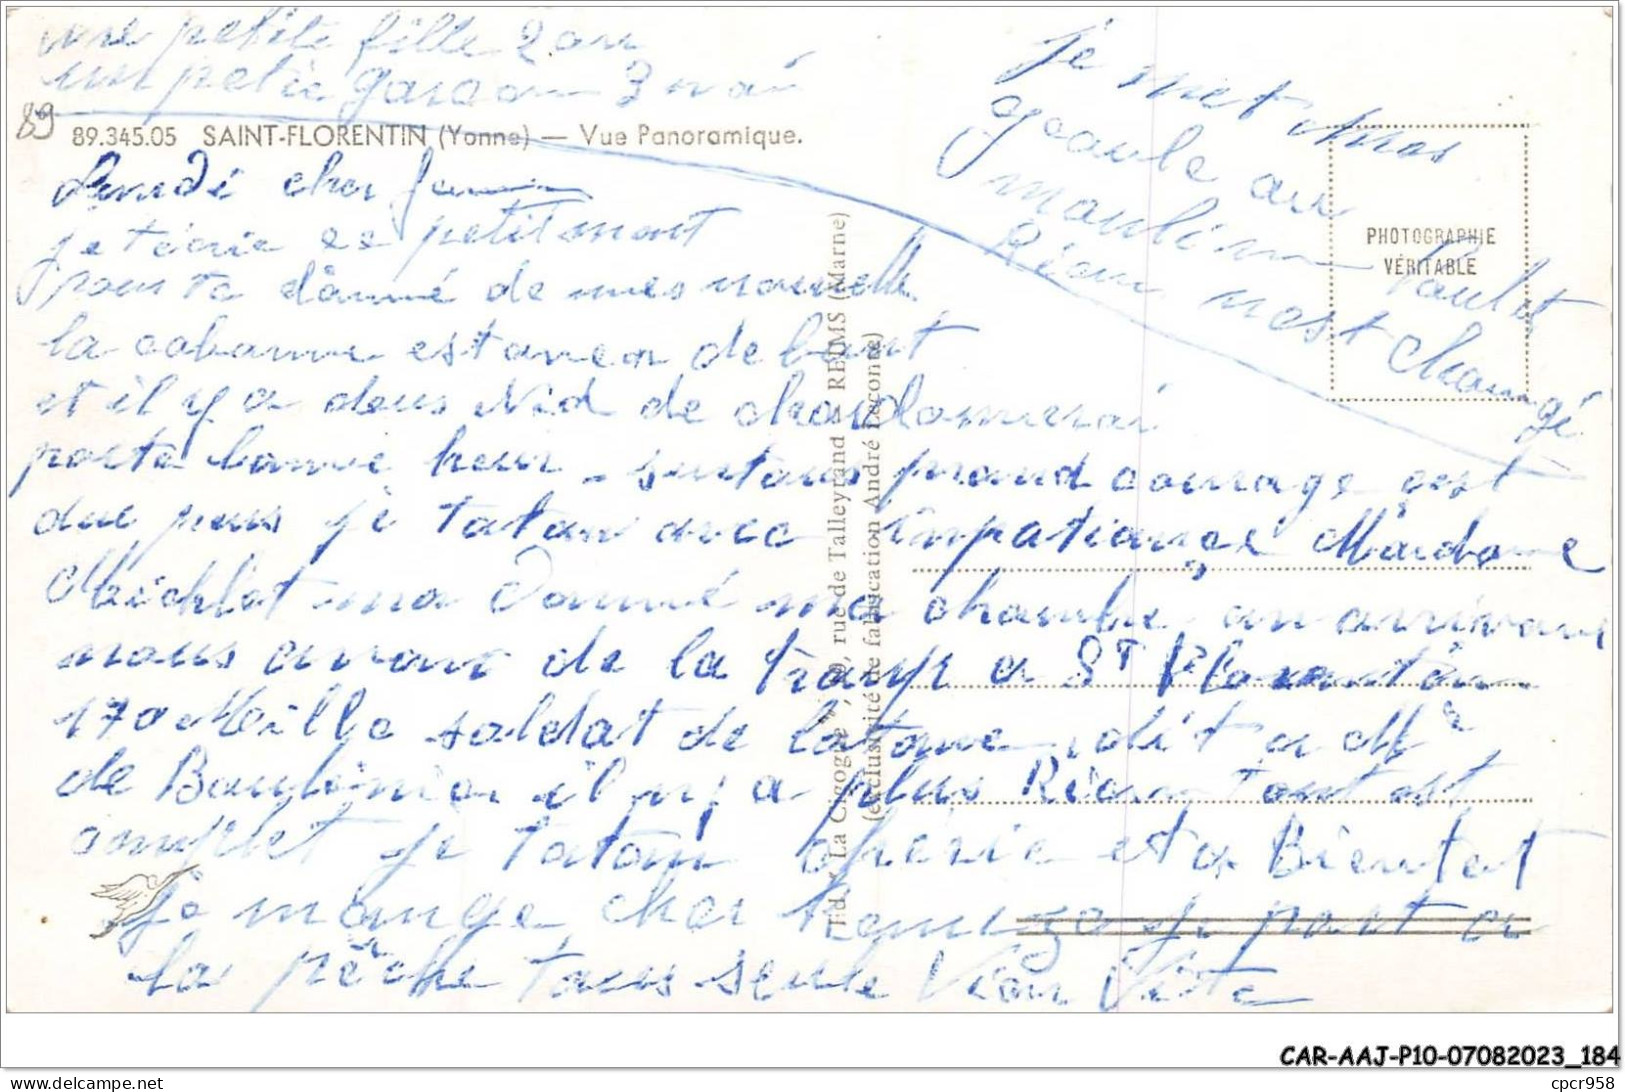 une petite fille 2 an
un petie garcon 3 moi
89
89.345.05 SAINT-FLORENTIN (Yonne) — Vue Panoramique.
Lundi cher
je técrie se petit mont
pour ta donné de mes nouvelle
la cabanne est de bout
et il y a deus Nid de
porte bonne heur surtous prand courage cest
due pous je tatan avec impatiance Madame
Michlot ma donné ma chambre an arrivan
nous avons de la a St Florantin
170 Mille soldat de la dit a Me
de il ny a plus Rien tout est
complet je tatan chérie et a Bientot
je mange cher je part a
la pêche tous seule Vien Vite
je met mos
gaule au
moulin Paulet
Rien nest changé
PHOTOGRAPHIE
VÉRITABLE
Ed. "La Cigogne", rue de Talleyrand REIMS (Marne)
(exclusivité de fabrication André Leconte)
CAR-AAJ-P10-07082023_184
www.delcampe.net
cpcr958